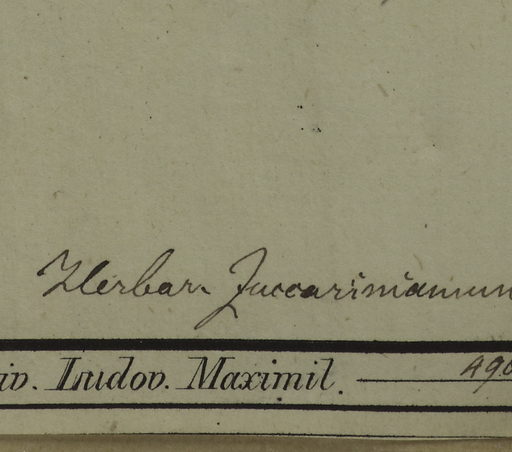 Herbar. Zuccarinianum
iv. Ludov. Maximil.